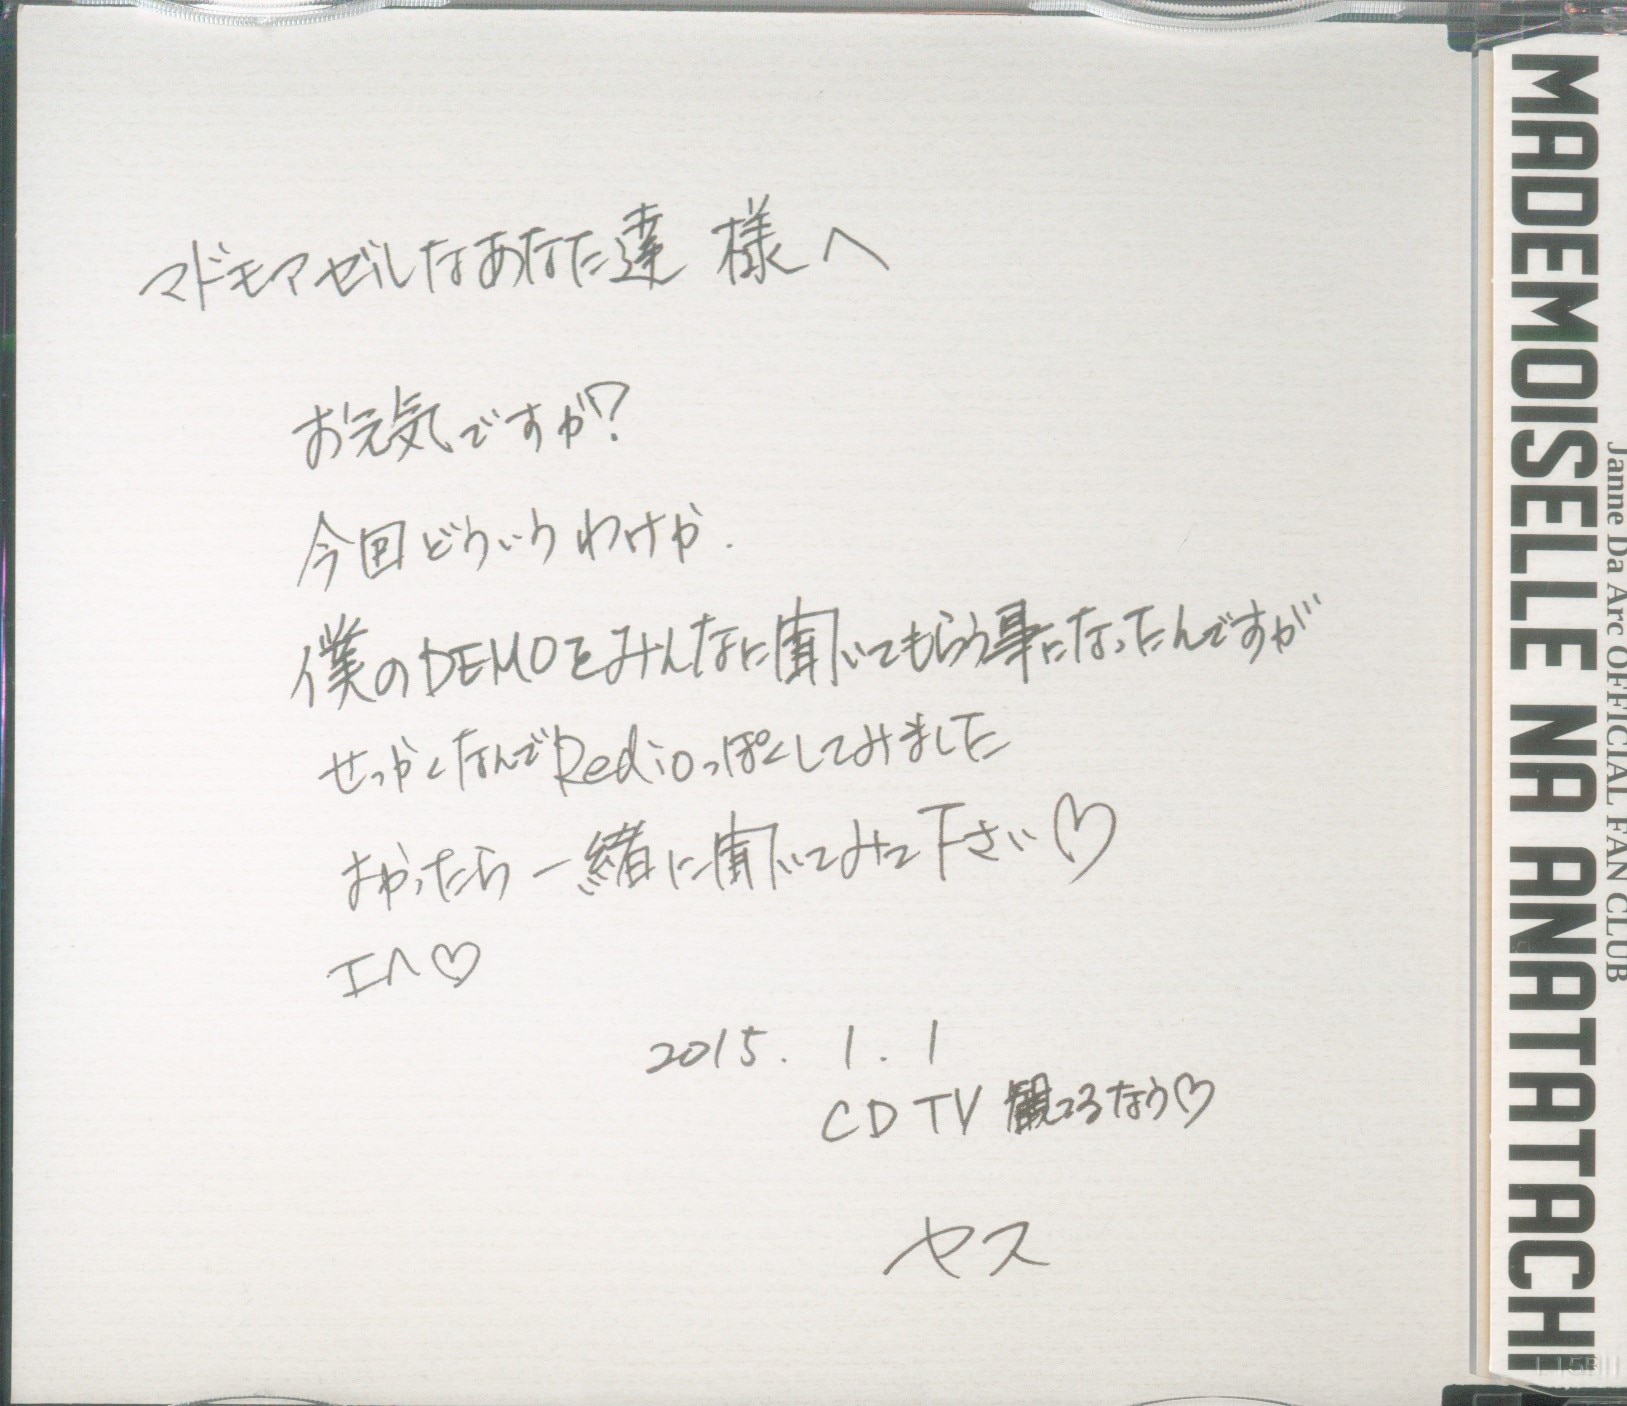 マドモアゼルなあなた達 様へ
お元気ですか?
今回どういうわけか.
僕のDEMOをみんなに聞いてもらう事になったんですが
せっかくなんでRedioっぽくしてみました
よかったら一緒に聞いてみて下さい♡
エヘ♡
2015. 1. 1
CDTV 観てるなう♡
ヤス
MADEMOISELLE NA ANATATACHI
Janne Da Arc OFFICIAL FAN CLUB